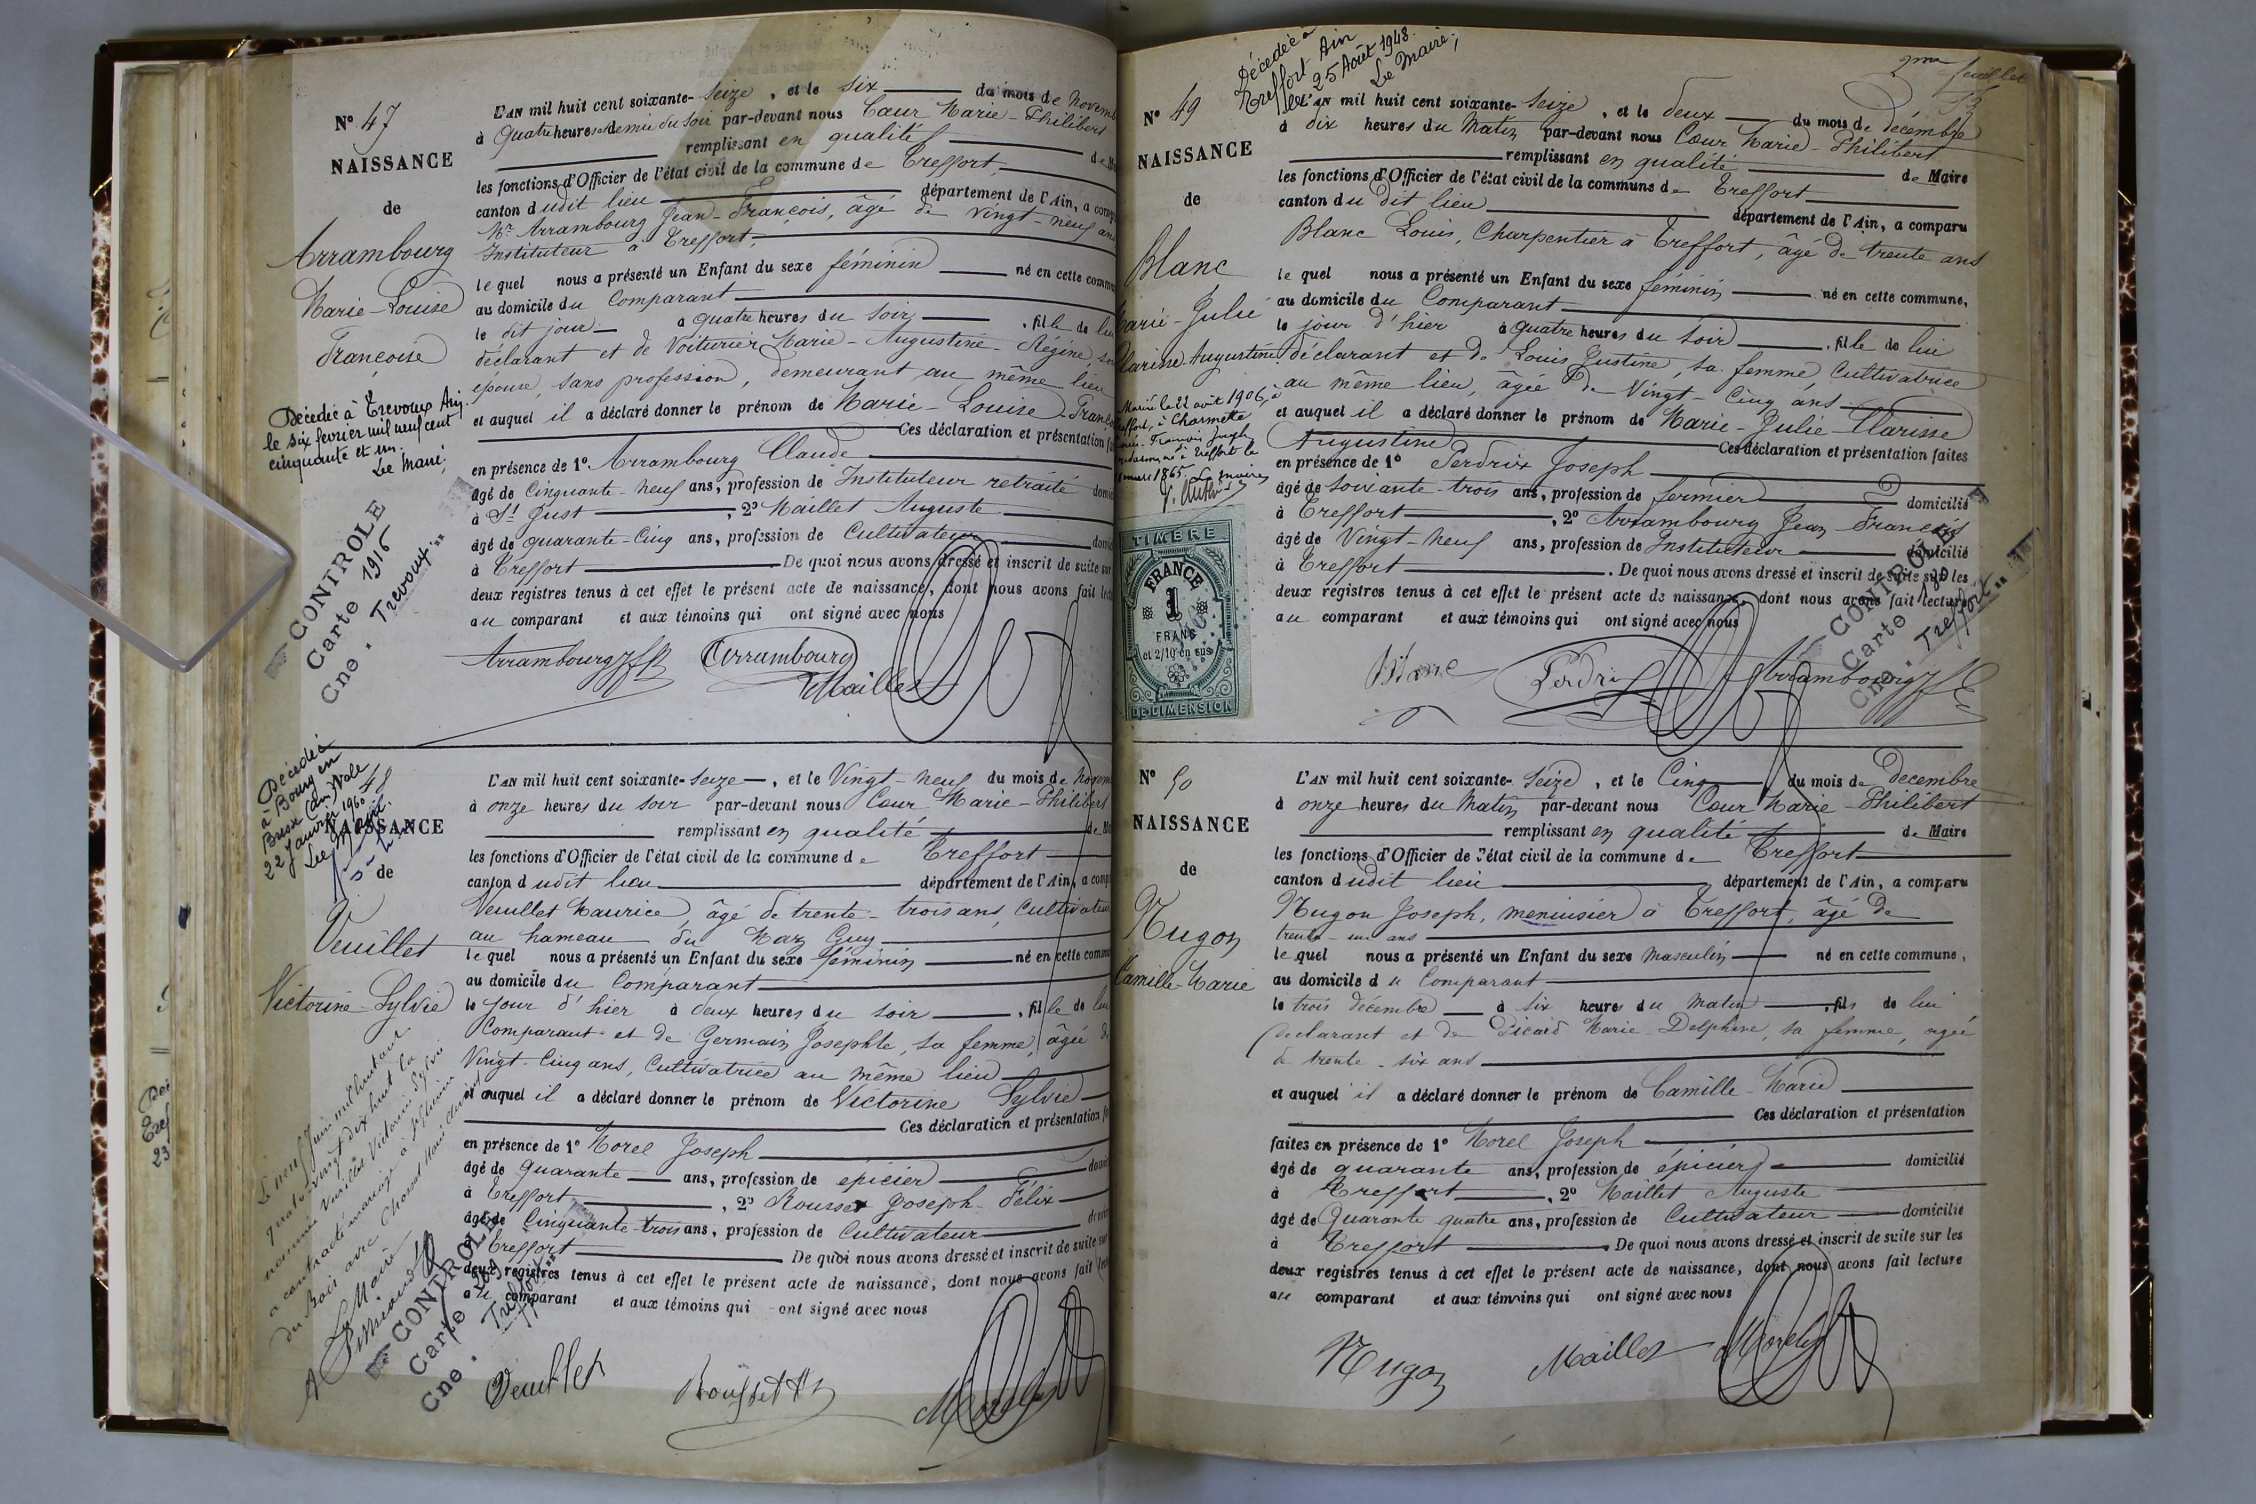 N° 47
NAISSANCE
de
Arrambourg
Marie-Louise
Françoise
Décédée à Trevoux Ain
le six fevrier mil neuf cent
cinquante et un.
Le Maire,
CONTROLE
Carte 1916
Cne. Trevoux
L'AN mil huit cent soixante-seize, et le six du mois de Novemb
à Quatre heures et demie du soir par-devant nous Cœur Marie-Philibert
remplissant en qualité de M
les fonctions d'Officier de l'état civil de la commune de Treffort,
canton dudit lieu département de l'Ain, a comp
Mr. Arrambourg Jean-François, âgé de vingt-neuf ans
Instituteur à Treffort,
lequel nous a présenté un Enfant du sexe féminin né en cette commu
au domicile du Comparant
le dit jour à quatre heures du soir, fille de lui
déclarant et de Voiturier Marie-Augustine-Régine, son
épouse, sans profession, demeurant au même lieu
et auquel il a déclaré donner le prénom de Marie-Louise-Franço
Ces déclaration et présentation fa
en présence de 1° Arrambourg Claude
âgé de Cinquante-neuf ans, profession de Instituteur retraité domi
à St Just, 2° Maillet Auguste
âgé de quarante-Cinq ans, profession de Cultivateur domi
à Treffort De quoi nous avons dressé et inscrit de suite sur
deux registres tenus à cet effet le présent acte de naissance, dont nous avons fait lect
au comparant et aux témoins qui ont signé avec nous
Arrambourg Jf Arrambourg
Maillet
N° 48
NAISSANCE
de
Décédée
à Bourg en
Bresse (Ain) le
22 Janvier 1960
Le Maire.
Veuillet
Victorine-Sylvie
Le neuf Juin mil huit cent
quatre vingt dix huit la
nommée Veuillet Victorine Sylvie
a contracté mariage à
du Bois avec
Le Maire
CONTROLE
Carte 209
Cne. Treffort
L'AN mil huit cent soixante-seize, et le Vingt-neuf du mois de Novem
à onze heures du soir par-devant nous Cœur Marie-Philibert
remplissant en qualité de M
les fonctions d'Officier de l'état civil de la commune de Treffort
canton dudit lieu département de l'Ain, a comp
Veuillet Maurice, âgé de trente-trois ans, Cultivateur
au hameau du Maz Guy
lequel nous a présenté un Enfant du sexe féminin né en cette commu
au domicile du Comparant
le jour d'hier à deux heures du soir, fille de lui
Comparant et de Germain Josephte, sa femme, âgée de
Vingt-Cinq ans, Cultivatrice au même lieu
et auquel il a déclaré donner le prénom de Victorine Sylvie
Ces déclaration et présentation fa
en présence de 1° Morel Joseph
âgé de quarante ans, profession de épicier domi
à Treffort, 2° Rousset Joseph-Félix
âgé de Cinquante-trois ans, profession de Cultivateur domi
à Treffort De quoi nous avons dressé et inscrit de suite sur
deux registres tenus à cet effet le présent acte de naissance, dont nous avons fait lect
au comparant et aux témoins qui ont signé avec nous
Veuillet Rousset Morel
2me feuillet
Décédée à
Treffort Ain
le 25 Août 1948.
Le Maire,
N° 49
NAISSANCE
de
Blanc
Marie-Julie
Clarisse Augustine
Mariée le 22 août 1906, à
Treffort, à Charmette
François Joseph
à Treffort le
mars 1865. Le maire
TIMBRE
FRANCE
1
FRANC
et 2/10 en sus
DE DIMENSION
L'AN mil huit cent soixante-seize, et le deux du mois de décembre
à dix heures du Matin par-devant nous Cœur Marie-Philibert
remplissant en qualité de Maire
les fonctions d'Officier de l'état civil de la commune de Treffort
canton du dit lieu département de l'Ain, a comparu
Blanc Louis, Charpentier à Treffort, âgé de trente ans
lequel nous a présenté un Enfant du sexe féminin né en cette commune,
au domicile du Comparant
le jour d'hier à quatre heures du soir, fille de lui
déclarant et de Louis Justine, sa femme, Cultivatrice
au même lieu, âgée de Vingt-Cinq ans
et auquel il a déclaré donner le prénom de Marie-Julie-Clarisse
Augustine Ces déclaration et présentation faites
en présence de 1° Perdrix Joseph
âgé de soixante-trois ans, profession de fermier domicilié
à Treffort, 2° Arrambourg Jean François
âgé de Vingt-neuf ans, profession de Instituteur domicilié
à Treffort. De quoi nous avons dressé et inscrit de suite sur les
deux registres tenus à cet effet le présent acte de naissance, dont nous avons fait lecture
au comparant et aux témoins qui ont signé avec nous
CONTROLE
Carte 180
Cne. Treffort
Blanc Perdrix Arrambourg Jf
N° 50
NAISSANCE
de
Nugon
Camille-Marie
L'AN mil huit cent soixante-seize, et le Cinq du mois de Decembre
à onze heures du Matin par-devant nous Cœur Marie-Philibert
remplissant en qualité de Maire
les fonctions d'Officier de l'état civil de la commune de Treffort
canton dudit lieu département de l'Ain, a comparu
Nugon Joseph, menuisier à Treffort, âgé de
trente-un ans
lequel nous a présenté un Enfant du sexe masculin né en cette commune,
au domicile du Comparant
le trois décembre à six heures du matin, fils de lui
Declarant et de Picard Marie-Delphine, sa femme, agée
de trente-six ans
et auquel il a déclaré donner le prénom de Camille-Marie
Ces déclaration et présentation
faites en présence de 1° Morel Joseph
âgé de quarante ans, profession de épicier domicilié
à Treffort, 2° Maillet Auguste
âgé de Quarante quatre ans, profession de Cultivateur domicilié
à Treffort. De quoi nous avons dressé et inscrit de suite sur les
deux registres tenus à cet effet le présent acte de naissance, dont nous avons fait lecture
au comparant et aux témoins qui ont signé avec nous
Nugon Maillet Morel